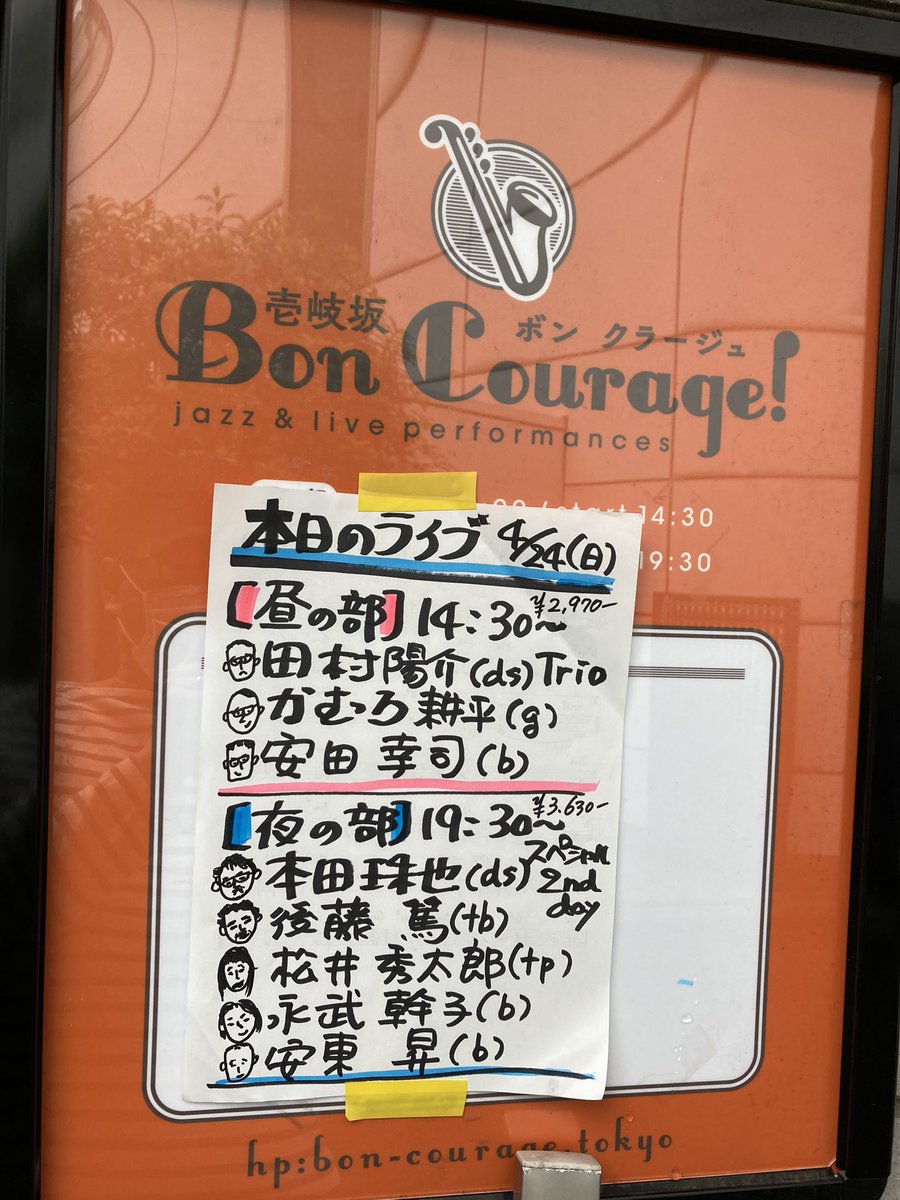 壱岐坂
ボン クラージュ
Bon Courage!
jazz & live performances
start 14:30
19:30
本日のライブ 4/24(日)
【昼の部】14:30~ ¥2,970-
田村陽介(ds)Trio
かむろ耕平(g)
安田幸司(b)
【夜の部】19:30~ ¥3,630-
本田珠也(ds)スペシャル 2nd day
後藤 篤(tb)
松井秀太郎(tp)
永武幹子(b)
安東 昇(b)
hp:bon-courage.tokyo